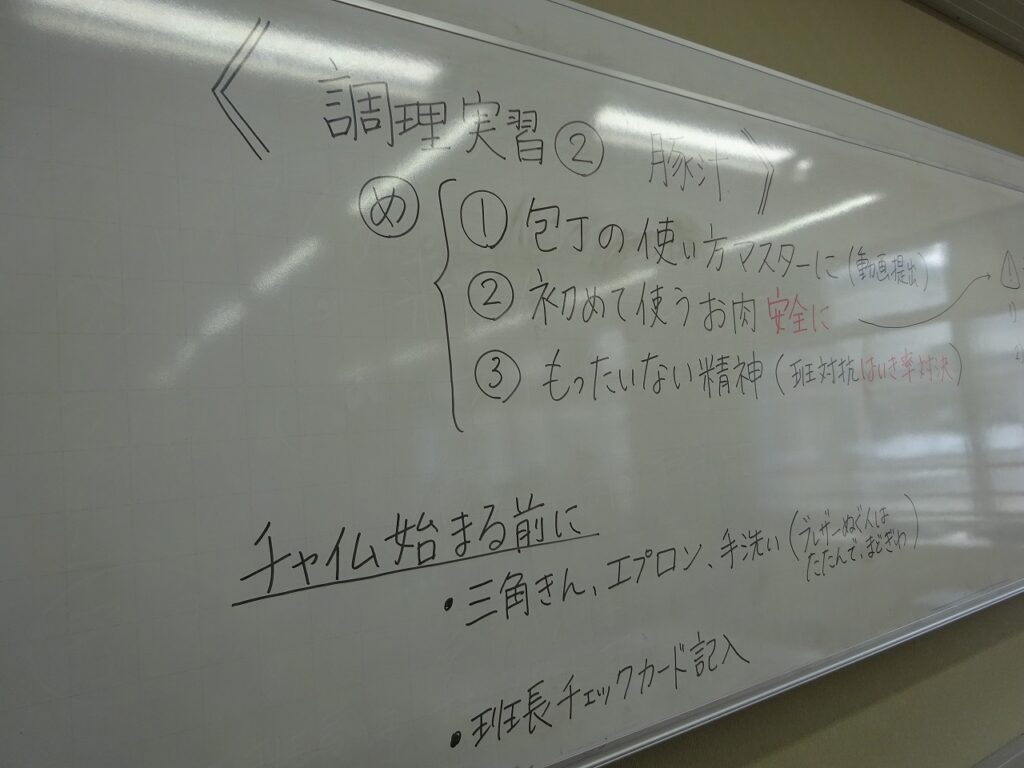 《 調理実習② 豚汁 》
め ① 包丁の使い方マスターに(動画提出)
② 初めて使うお肉安全に
③ もったいない精神(班対抗はいき率対決)
チャイム始まる前に
・三角きん、エプロン、手洗い(ブレザーぬぐ人は
たたんで、まどぎわ)
・班長チェックカード記入